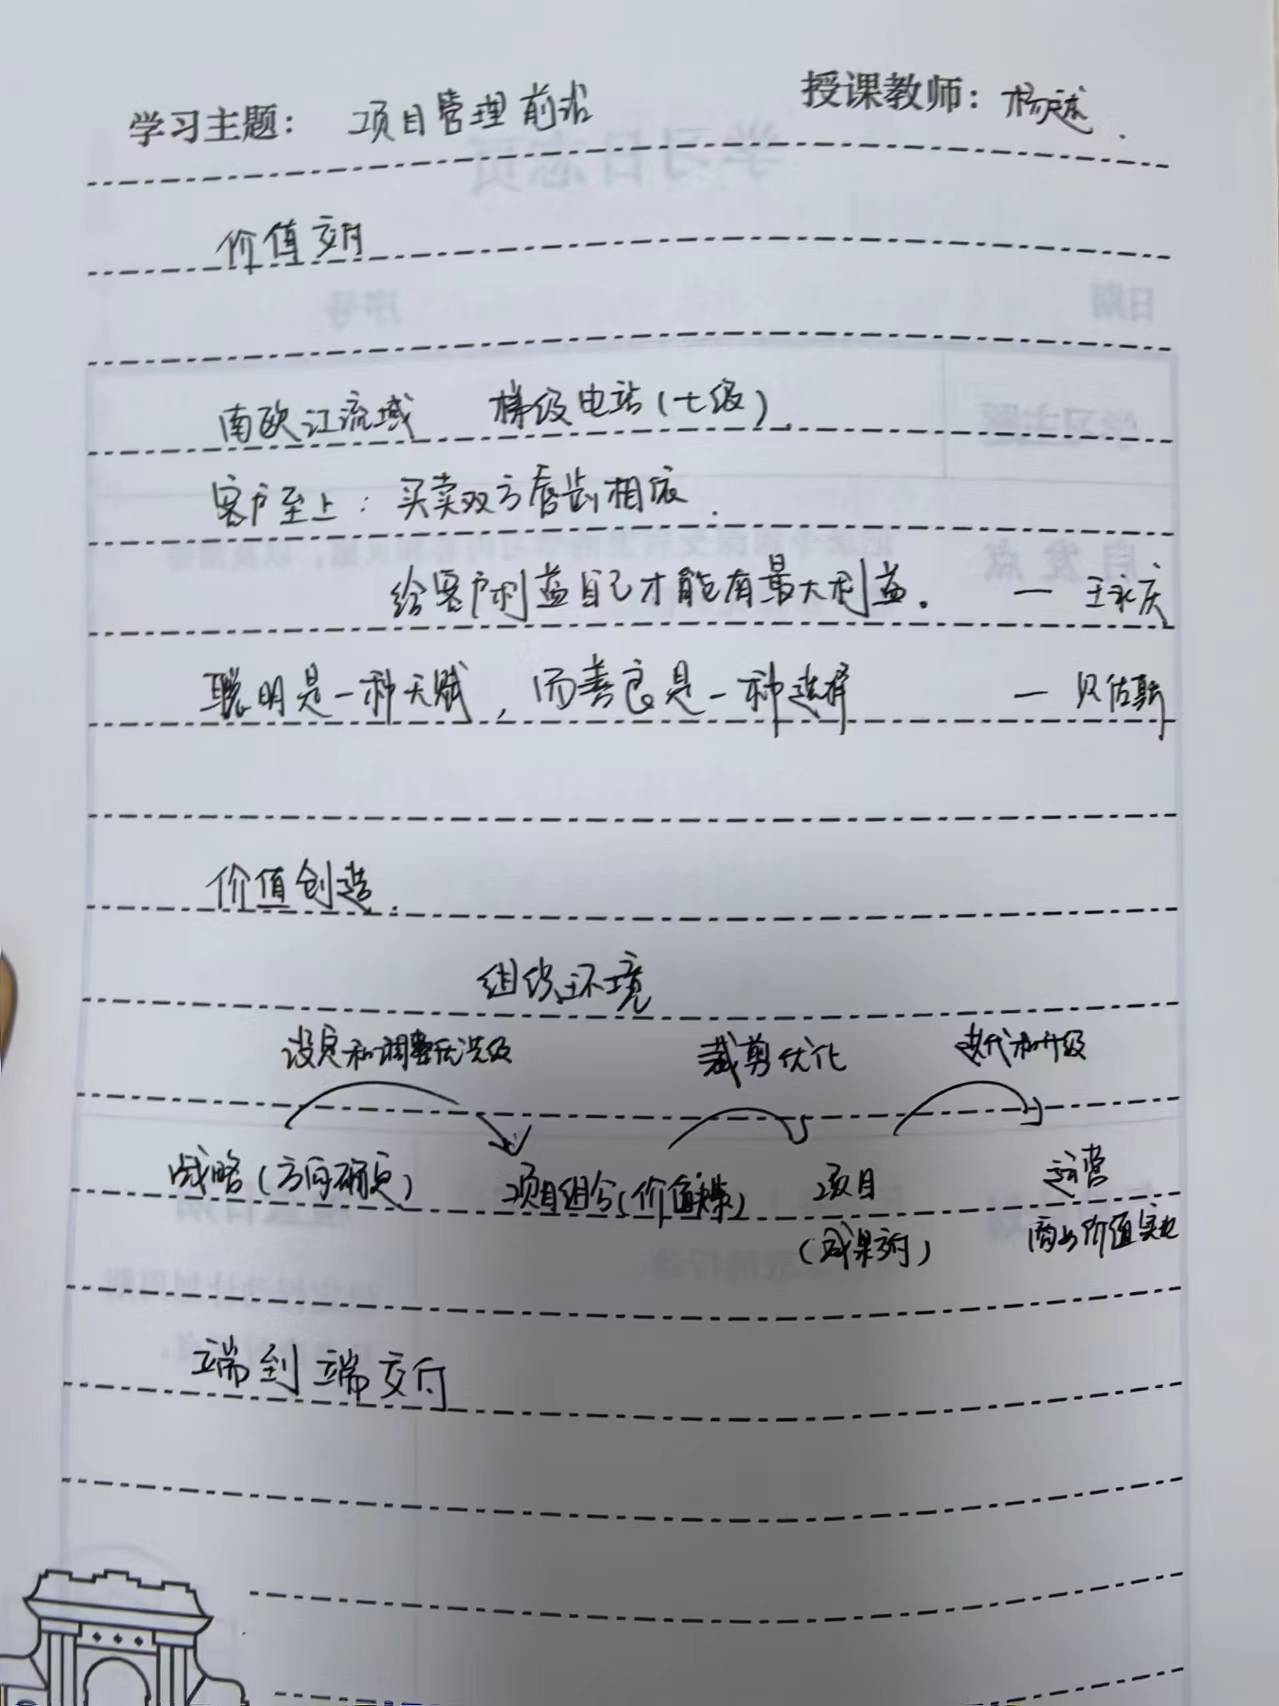 学习主题： 项目管理前沿 授课教师：杨斌
价值交付
南欧江流域 梯级电站（七级）
客户至上：买卖双方唇齿相依．
给客户利益自己才能有最大利益． — 王永庆
聪明是一种天赋，而善良是一种选择 — 贝佐斯
价值创造．
组织环境
设定和调整优先级 裁剪优化 迭代和升级
战略（方向确定） 项目组合（价值） 项目 运营
（成果交付） 商业价值实现
端到端交付